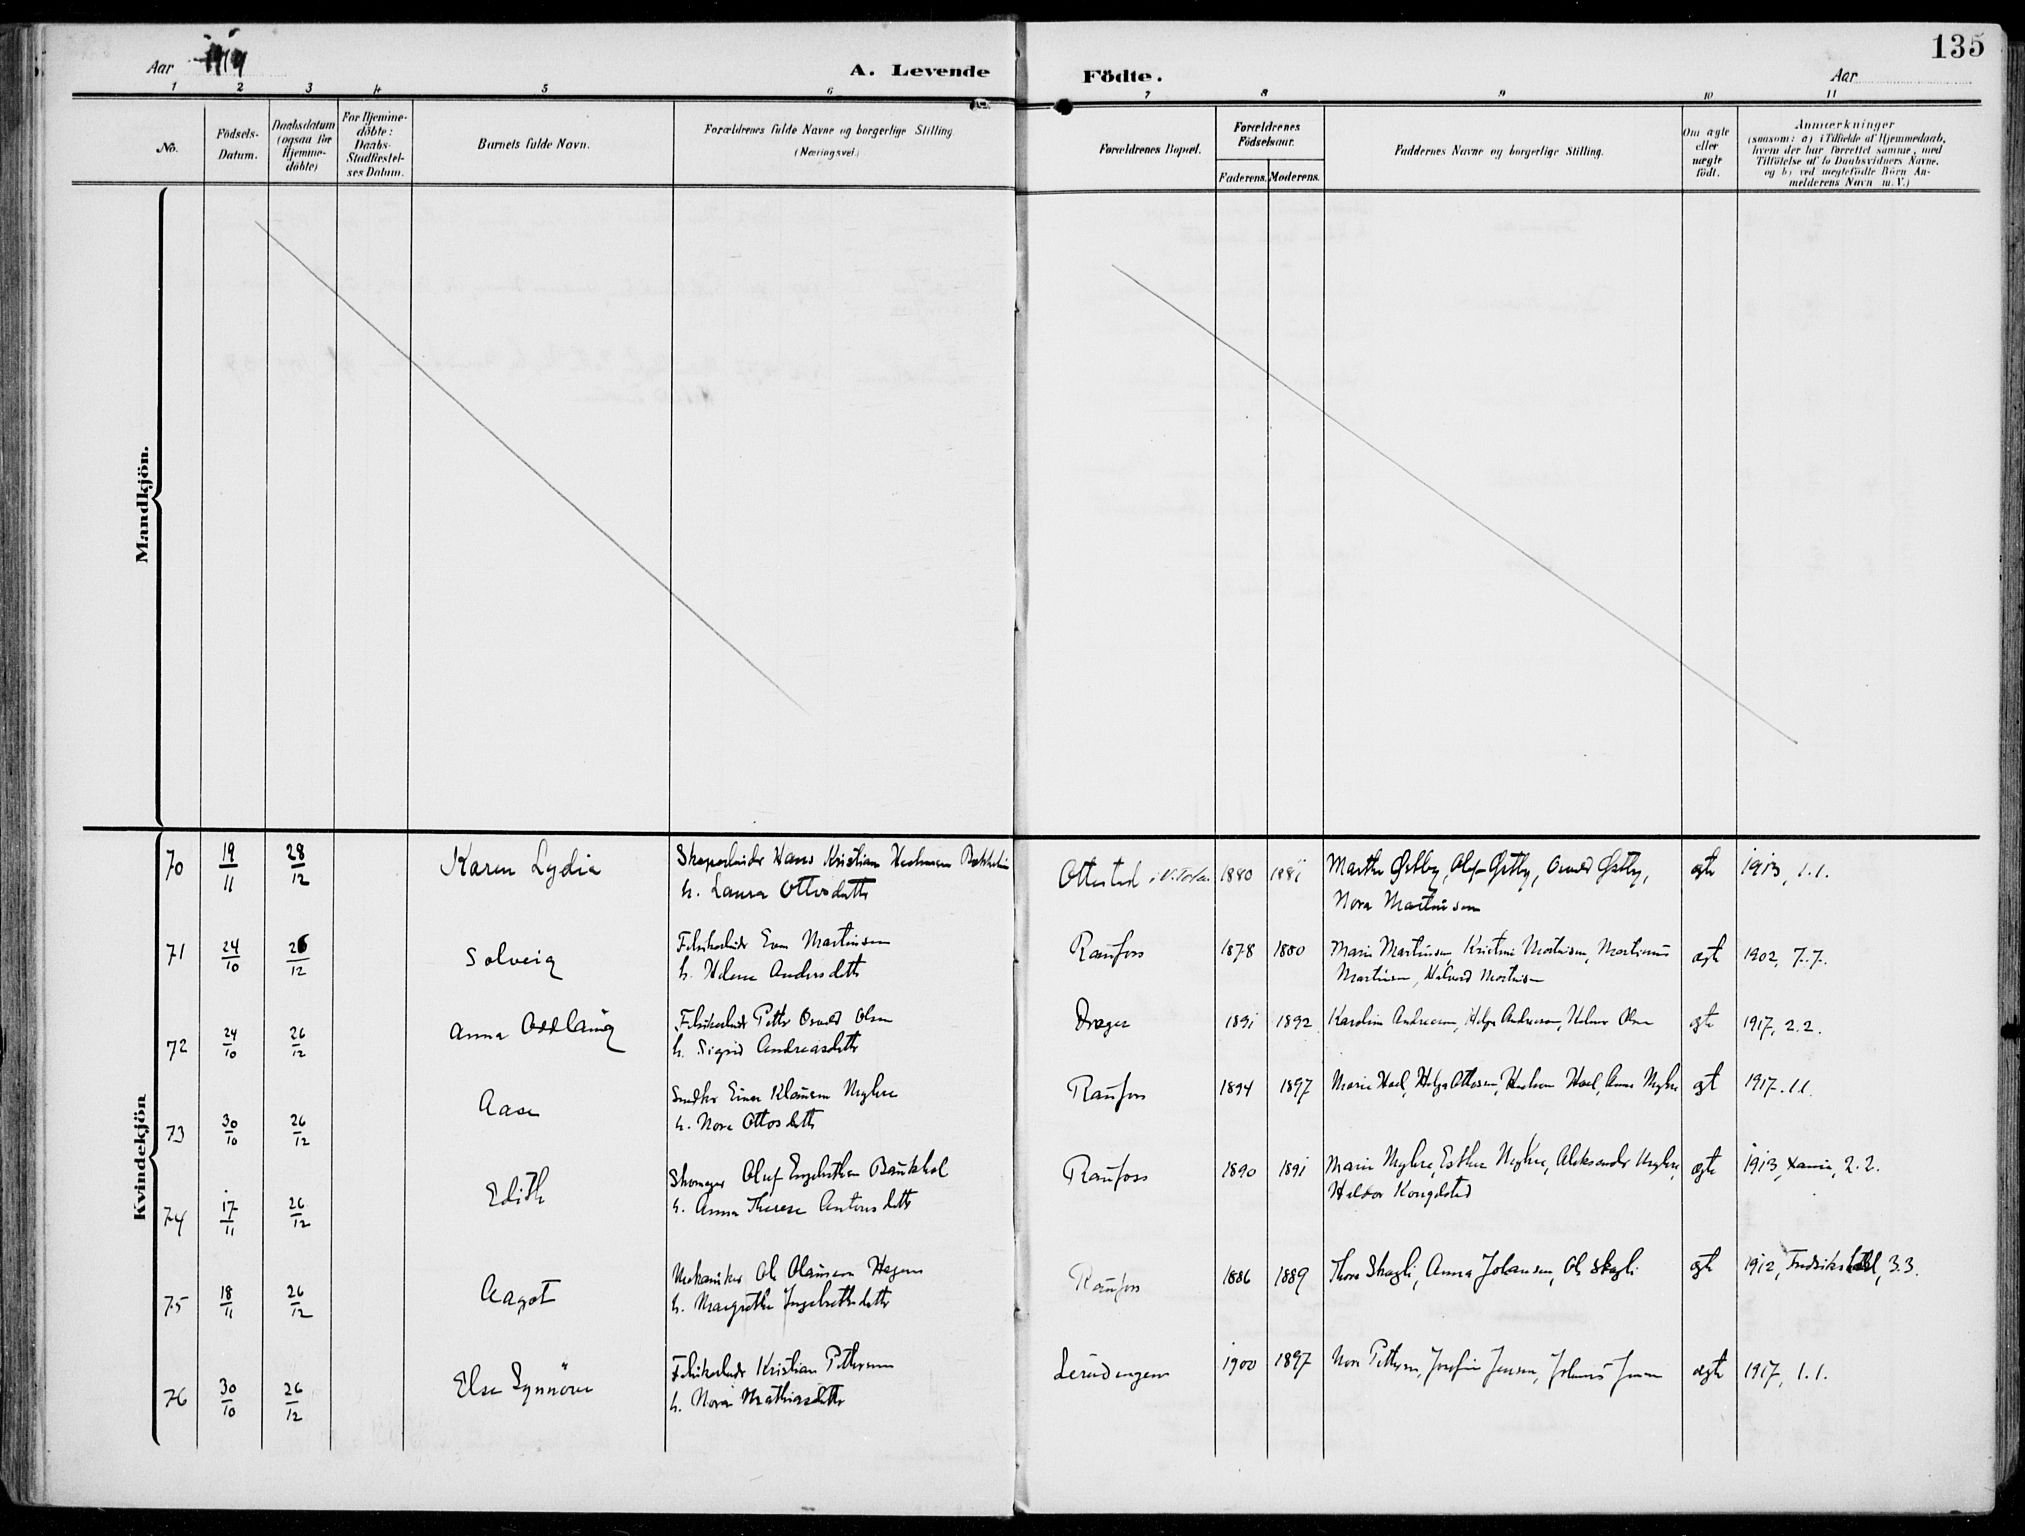 135
Aar 1917
A. Levende Födte.
Aar
1 2 3 4 5 6 7 8 9 10 11
No.
Födsels-
Datum.
Daabsdatum
(ogsaa for
Hjemme-
döbte)
For Hjemme-
döbte:
Daabs-
Stadfæstel-
ses Datum.
Barnets fulde Navn.
Forældrenes fulde Navne og borgerlige Stilling
(Næringsvei.)
Forældrenes Bopæl.
Forældrenes
Födselsaar.
Faderens. Moderens.
Faddernes Navne og borgerlige Stilling.
Om ægte
eller
uægte
födt.
Anmærkninger
(saasom: a) i Tilfælde af Hjemmedaab,
hvem der har forrettet samme, med
Tilföielse af to Daabsvidners Navne,
og b) ved uægtefödte Börn An-
melderens Navn m. V.)
Mandkjön.
Kvindekjön
70 19/11 28/12 Karen Lydia Hans Kristian
h. Laura Ottosdatter
Ottestad i V. Toten 1880 Marthe Østby, Olaf Østby, Østby,
Nora Martinsen
ægte 1913, 1.1.
71 24/10 26/12 Solveig Even Martinsen
h. Helene Andersdatter
Raufoss 1878 1880 Marie Martinsen, Kristine Martinsen, Martinus
Martinsen, Halvard Martinsen
ægte 1902, 7.7.
72 24/10 26/12 Anna Oddlaug Petter Olsen
h. Sigrid Andreasdatter
Dræger 1891 1892 Karoline Andreasen, Helga Andreasen, Helmer Olsen ægte 1917, 2.2.
73 30/10 26/12 Aase Snedker Einar Klausen Myhre
h. Nora Ottosdatter
Raufoss 1894 1897 Marie Hoel, Helga Ottosen, Hoel, Anna Myhre ægte 1917. 1.1.
74 17/11 26/12 Edith Skomager Oluf Engebretsen
h. Anna Therese Antonsdatter
Raufoss 1890 1891 Marie Myhre, Esther Myhre, Aleksander Myhre,
ægte 1913, Xania, 2.2.
75 18/11 26/12 Aagot Mekaniker Ole Olaussen Hagen
h. Margrethe Ingebretsdatter
Raufoss 1886 1889 Thora Skagli, Anna Johansen, Ole Skagli ægte 1912, 3.3.
76 30/10 26/12 Else Synnöve Kristian Pettersen
h. Nora Mathiasdatter
1900 1897 Nora Pettersen, Josefine Jensen, Johannes Jensen ægte 1917, 1.1.